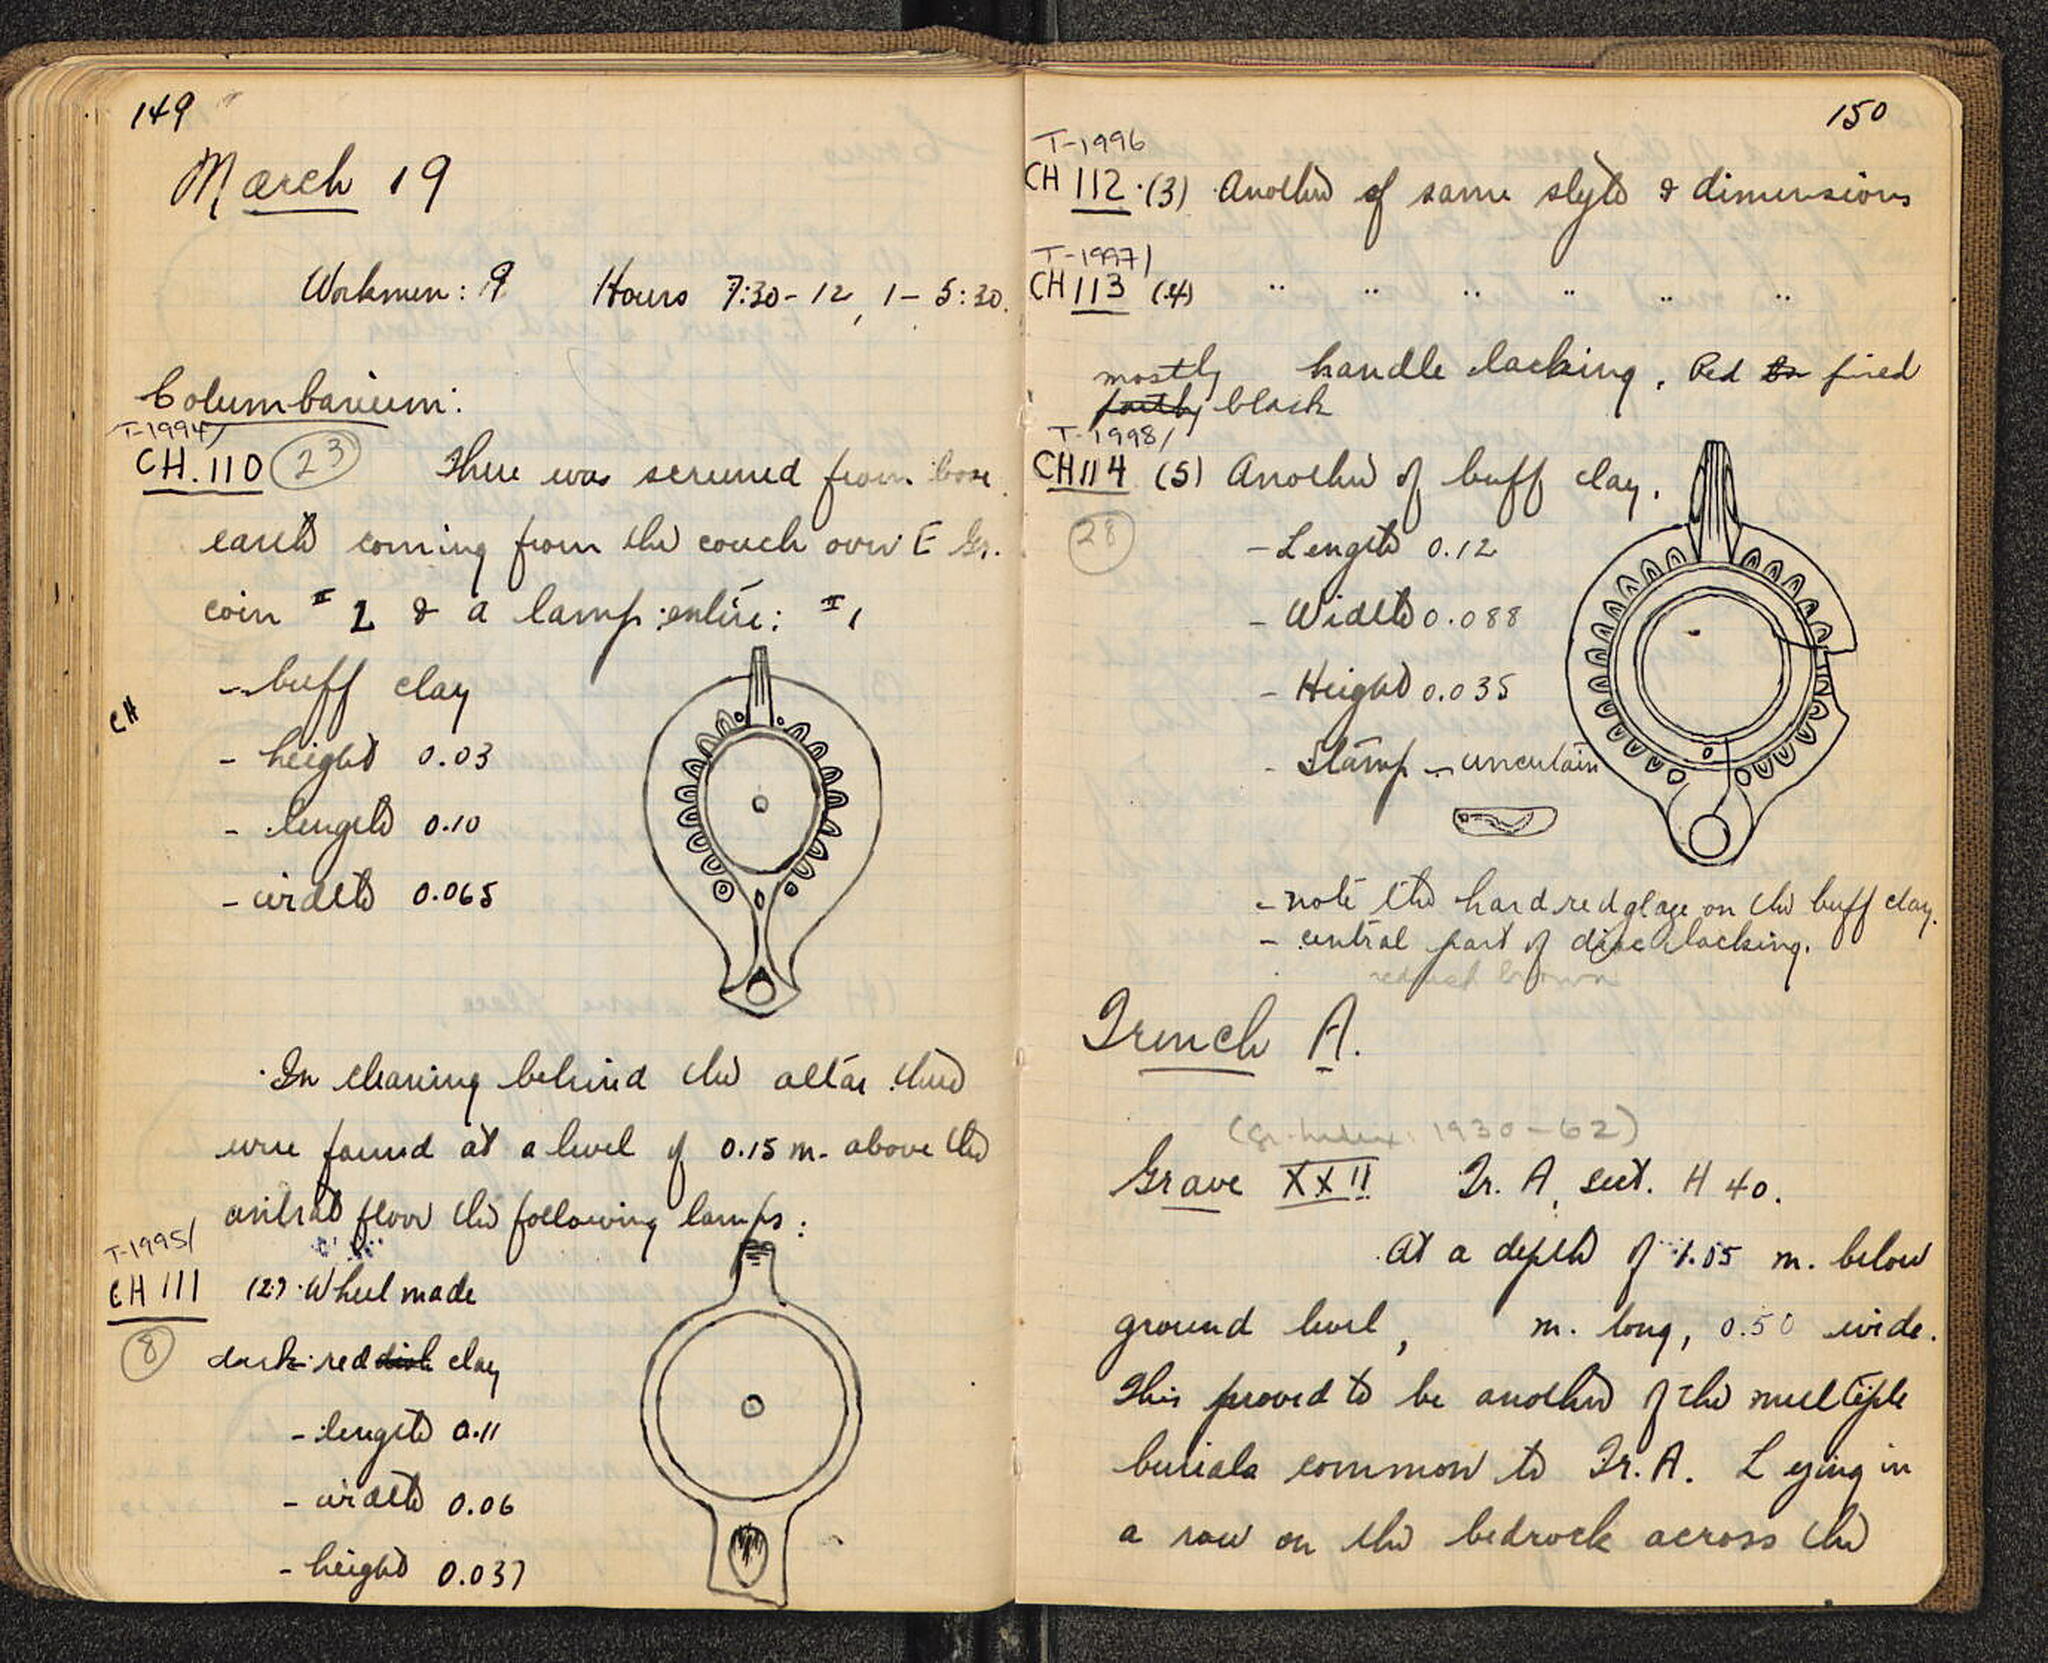 149
March 19
Workmen: 9 Hours 7:30-12, 1-5:30.
Columbarium:
T-1994/
CH.110 (23) There was screened from loose
earth coming from the couch over E Gr.
coin # 2 & a lamp entire: #1
- buff clay
CH
- height 0.03
- length 0.10
- width 0.065
In cleaning behind the altar there
were found at a level of 0.15 m. above the
central floor the following lamps:
T-1995/
CH 111 (2) Wheel made
(8) dark reddish clay
- length 0.11
- width 0.06
- height 0.037
150
T-1996
CH 112 (3) Another of same style & dimensions
T-1997/
CH 113 (4) " " " " " "
mostly handle lacking. Red fired
partly black
T-1998/
CH 114 (5) Another of buff clay.
(28) - Length 0.12
- Width 0.088
- Height 0.035
- Stamp - uncertain
- note the hard red glaze on the buff clay.
- central part of disc lacking.
reddish brown
Trench A.
(gr. index: 1930-62)
Grave XXII Tr. A, sect. H 40.
At a depth of 1.05 m. below
ground level, m. long, 0.50 wide.
This proved to be another of the multiple
burials common to Tr. A. Lying in
a row on the bedrock across the